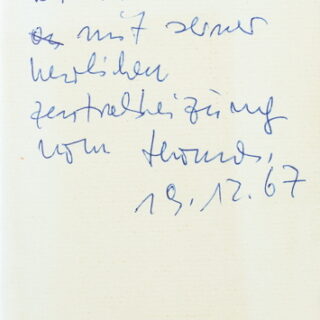 mit seiner
herzlichen
zentralheizung
vom thomas.
19.12.67